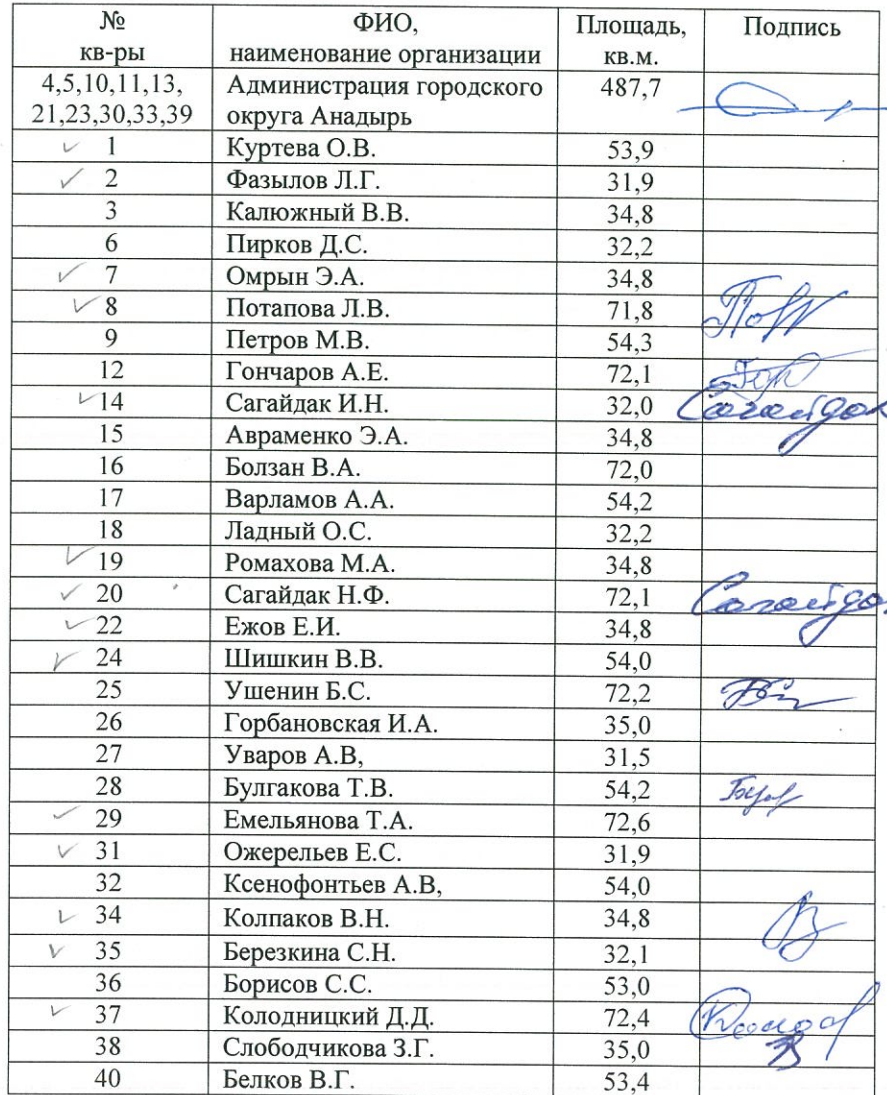 № ФИО, Площадь, Подпись
кв-ры наименование организации кв.м.
4,5,10,11,13, Администрация городского 487,7
21,23,30,33,39 округа Анадырь
1 Куртева О.В. 53,9
2 Фазылов Л.Г. 31,9
3 Калюжный В.В. 34,8
6 Пирков Д.С. 32,2
7 Омрын Э.А. 34,8
8 Потапова Л.В. 71,8
9 Петров М.В. 54,3
12 Гончаров А.Е. 72,1
14 Сагайдак И.Н. 32,0 Сагайдак
15 Авраменко Э.А. 34,8
16 Болзан В.А. 72,0
17 Варламов А.А. 54,2
18 Ладный О.С. 32,2
19 Ромахова М.А. 34,8
20 Сагайдак Н.Ф. 72,1 Сагайдак
22 Ежов Е.И. 34,8
24 Шишкин В.В. 54,0
25 Ушенин Б.С. 72,2
26 Горбановская И.А. 35,0
27 Уваров А.В, 31,5
28 Булгакова Т.В. 54,2
29 Емельянова Т.А. 72,6
31 Ожерельев Е.С. 31,9
32 Ксенофонтьев А.В, 54,0
34 Колпаков В.Н. 34,8
35 Березкина С.Н. 32,1
36 Борисов С.С. 53,0
37 Колодницкий Д.Д. 72,4
38 Слободчикова З.Г. 35,0
40 Белков В.Г. 53,4